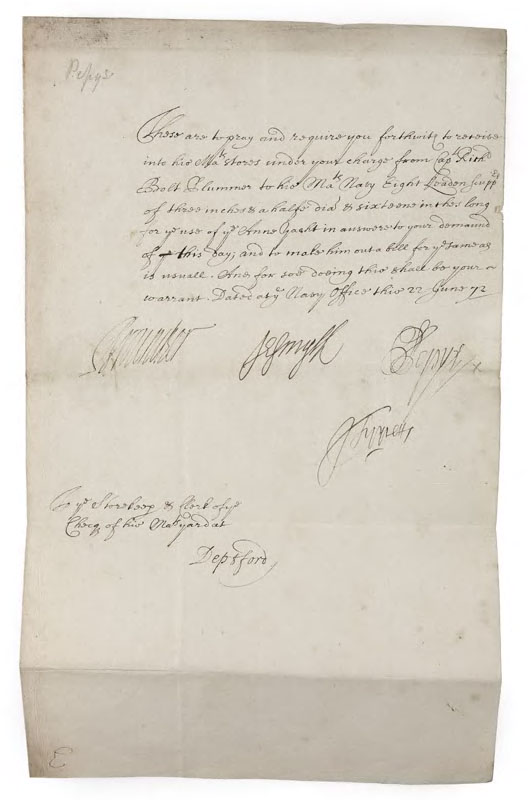 Pepys
These are to pray and require you forthwith to receive
into his Ma:ts stores under your charge from Richd
Bolt Plummer to his Ma:ts Navy Eight Leaden Scupprs
of three inches & a halfe dia: & sixteene inches long
for ye use of ye Anne yacht in answere to your demaund
of this day; and to make him out a bill for ye same as
is usuall. And for soe doeing this shall be your
warrant. Dated at ye Navy Office this 22 June 72
Brouncker JSmyth SPepys
JTippetts
To ye Storekeepr & Clerk of ye
Cheq of his Mats yard at
Deptford